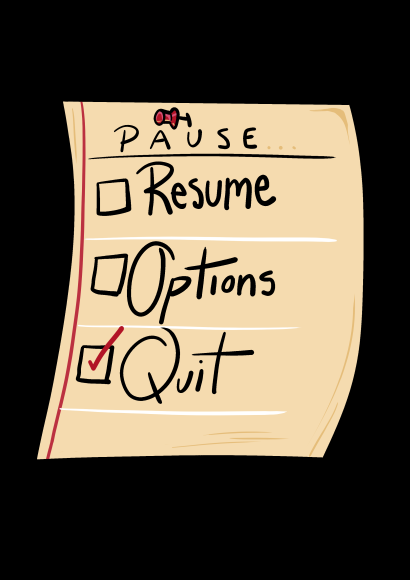 PAUSE...
Resume
Options
Quit